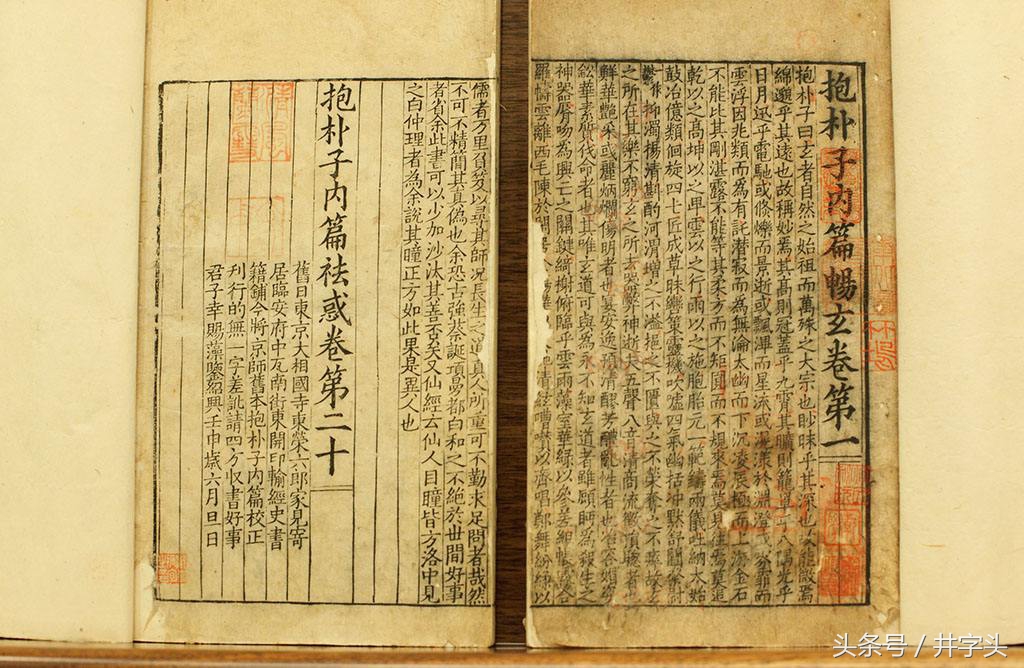 抱朴子内篇暢玄卷第一
抱朴子曰玄者自然之始祖而萬殊之大宗也眇昧乎其深也焉
綿邈乎其遠也故稱妙焉其高則冠蓋乎九霄其曠則籠罩乎八隅光乎
日月迅乎電馳或倏爍而景逝或飄滭而星流或滉漾於淵澄或雰霏而
雲浮因兆類而為有託潛寂而為無淪太幽而下沉凌辰極而上游金石
不能比其剛湛露不能等其柔方而不矩圓而不規來焉莫見往焉莫追
乾以之高坤以之卑雲以之行雨以之施胞胎元一範鑄兩儀吐納大始
鼓冶億類佪旋四七匠成草昧轡策靈機吹噓四氣幽括沖默舒闡粲尉
鬱抑濁揚清斟酌河渭增之不溢挹之不匱與之不榮奪之不瘁故玄
之所在其樂不窮玄之所去器弊神逝夫五聲八音清商流徵損聰者也
鮮華艷采或麗炳爛傷明者也宴安逸預清醪芳醴亂性者也冶容媚姿
鈆華素質伐命者也其唯玄道可與為永不知玄道者雖顧眄為殺生之
神器脣吻為興亡之關鍵綺榭俯臨乎雲雨藻室華緑以參差組帳霧合
羅幬雲離西毛陳於閒清絃嘈囋以齊唱鄭舞紛綵以
儒者万里負笈以尋其師况長生之道真人所重可不勤求足問者哉然
不可不精簡其真偽也余恐古強蔡誕項曼都白和之不絶於世間好事
者省余此書可以少加沙汰其善否矣又仙經云仙人目瞳皆方洛中見
之白仲理者為余說其瞳正方如此果是異人也
抱朴子内篇祛惑卷第二十
舊日東京大相國寺東榮六郎家見寄
居臨安府中瓦南街東開印輸經史書
籍鋪今將京師舊本抱朴子内篇校正
刋行的無一字差訛請四方收書好事
君子幸賜藻鑒紹興壬申歳六月旦日
头条号 / 井字头